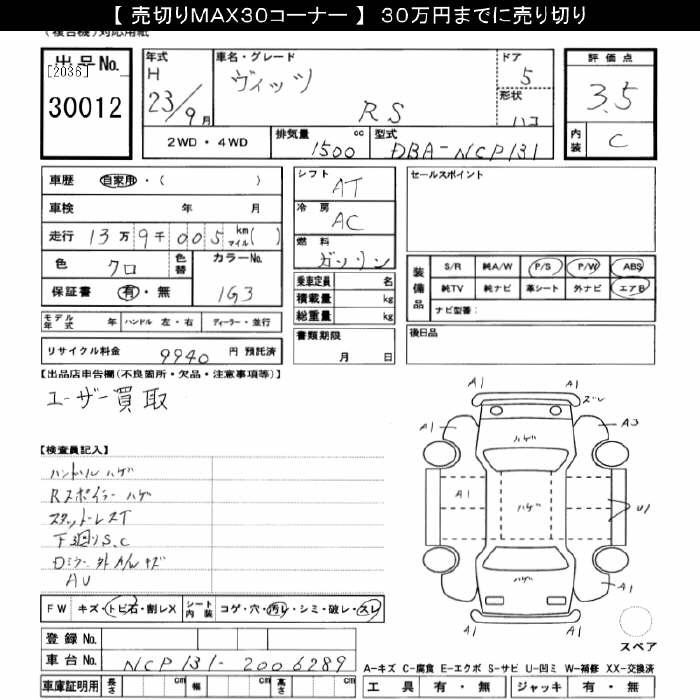 【 売切りMAX30コーナー 】 30万円までに売り切り
(複合機)対応用紙
出品No.
[2036]
30012
年式
H
23/9月
車名・グレード
ヴィッツ
RS
ドア
5
形状
ハコ
評価点
3.5
内装
C
2WD・4WD
排気量
1500 cc
型式
DBA-NCP131
車歴 自家用・( )
車検 年 月
走行 13万9千005 km マイル( )
色 クロ
色替
カラーNo.
1G3
保証書 有・無
モデル年式 年 ハンドル 左・右 ディーラー・並行
リサイクル料金 9940 円 預託済
シフト
AT
冷房
AC
燃料
ガソリン
乗車定員 名
積載量 kg
総重量 kg
書類期限
月 日
セールスポイント
装備品
S/R 純A/W P/S P/W ABS
純TV 純ナビ 革シート 外ナビ エアB
ナビ型番:
後日品
【出品店申告欄(不良箇所・欠品・注意事項等)】
ユーザー買取
【検査員記入】
ハンドル ハゲ
Rスポイラー ハゲ
スタッドレスT
下回りS.C
Dミラー外 A/W キズ
AU
FW キズ・トビ石・割レX
シート内装 コゲ・穴・汚レ・シミ・破レ・スレ
登録No.
車台No. NCP131-2006289
車庫証明用 長さ cm 幅 cm 高さ cm
A1
A1
ズレ
A1
A3
ハゲ
A1
ハゲ
U1
ハゲ
A1
A1
スペア
A-キズ C-腐食 E-エクボ S-サビ U-凹ミ W-補修 XX-交換済
工具 有・無 ジャッキ 有・無